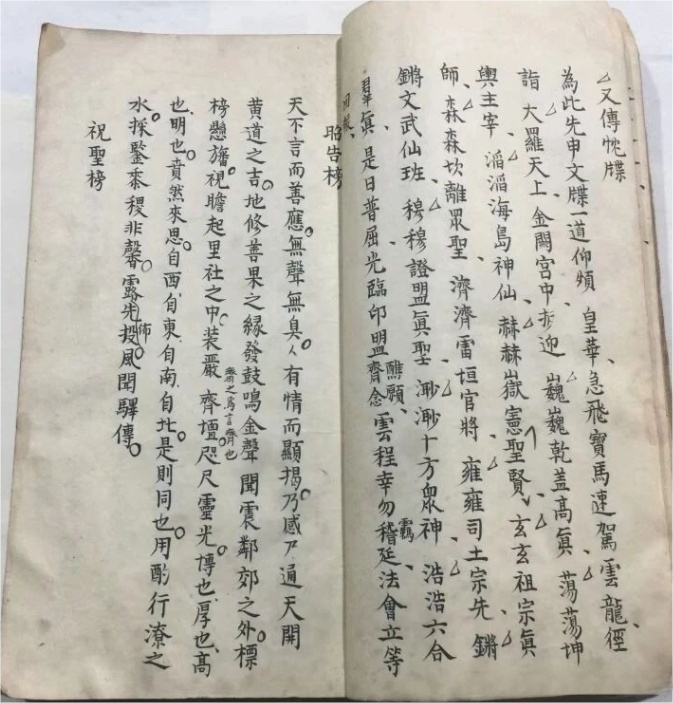 又傳牒
為此先申文牒一道仰煩 皇華急飛寶馬速駕雲龍徑
詣 大羅天上金闕宮中 迎 巍巍乾盖高眞 蕩蕩坤
輿主宰 滔滔海島神仙 赫赫嶽憲聖賢 玄玄祖宗眞
師 森森坎離眾聖 濟濟雷垣官將 雍雍司土宗先 鏘
鏘文武仙班 穆穆證盟眞聖 渺渺十方衆神 浩浩六合
羣眞 是日普屈光臨印盟齊念雲程幸勿稽延法會立等
醮願
回報
昭告榜
天不言而善應無聲無臭 有情而顯揚乃感 通天開
黄道之吉地修善果之緣發鼓鳴金聲 聞震鄰郊之外標
榜懸旛視瞻起里社之中装嚴 齊壇咫尺靈光博也厚也高
齊之爲言齊也
也明也賁然來思自西自東自南自北是則同也用酌行潦之
水採鑒黍稷非馨露先投風聞驛傳
祝聖榜